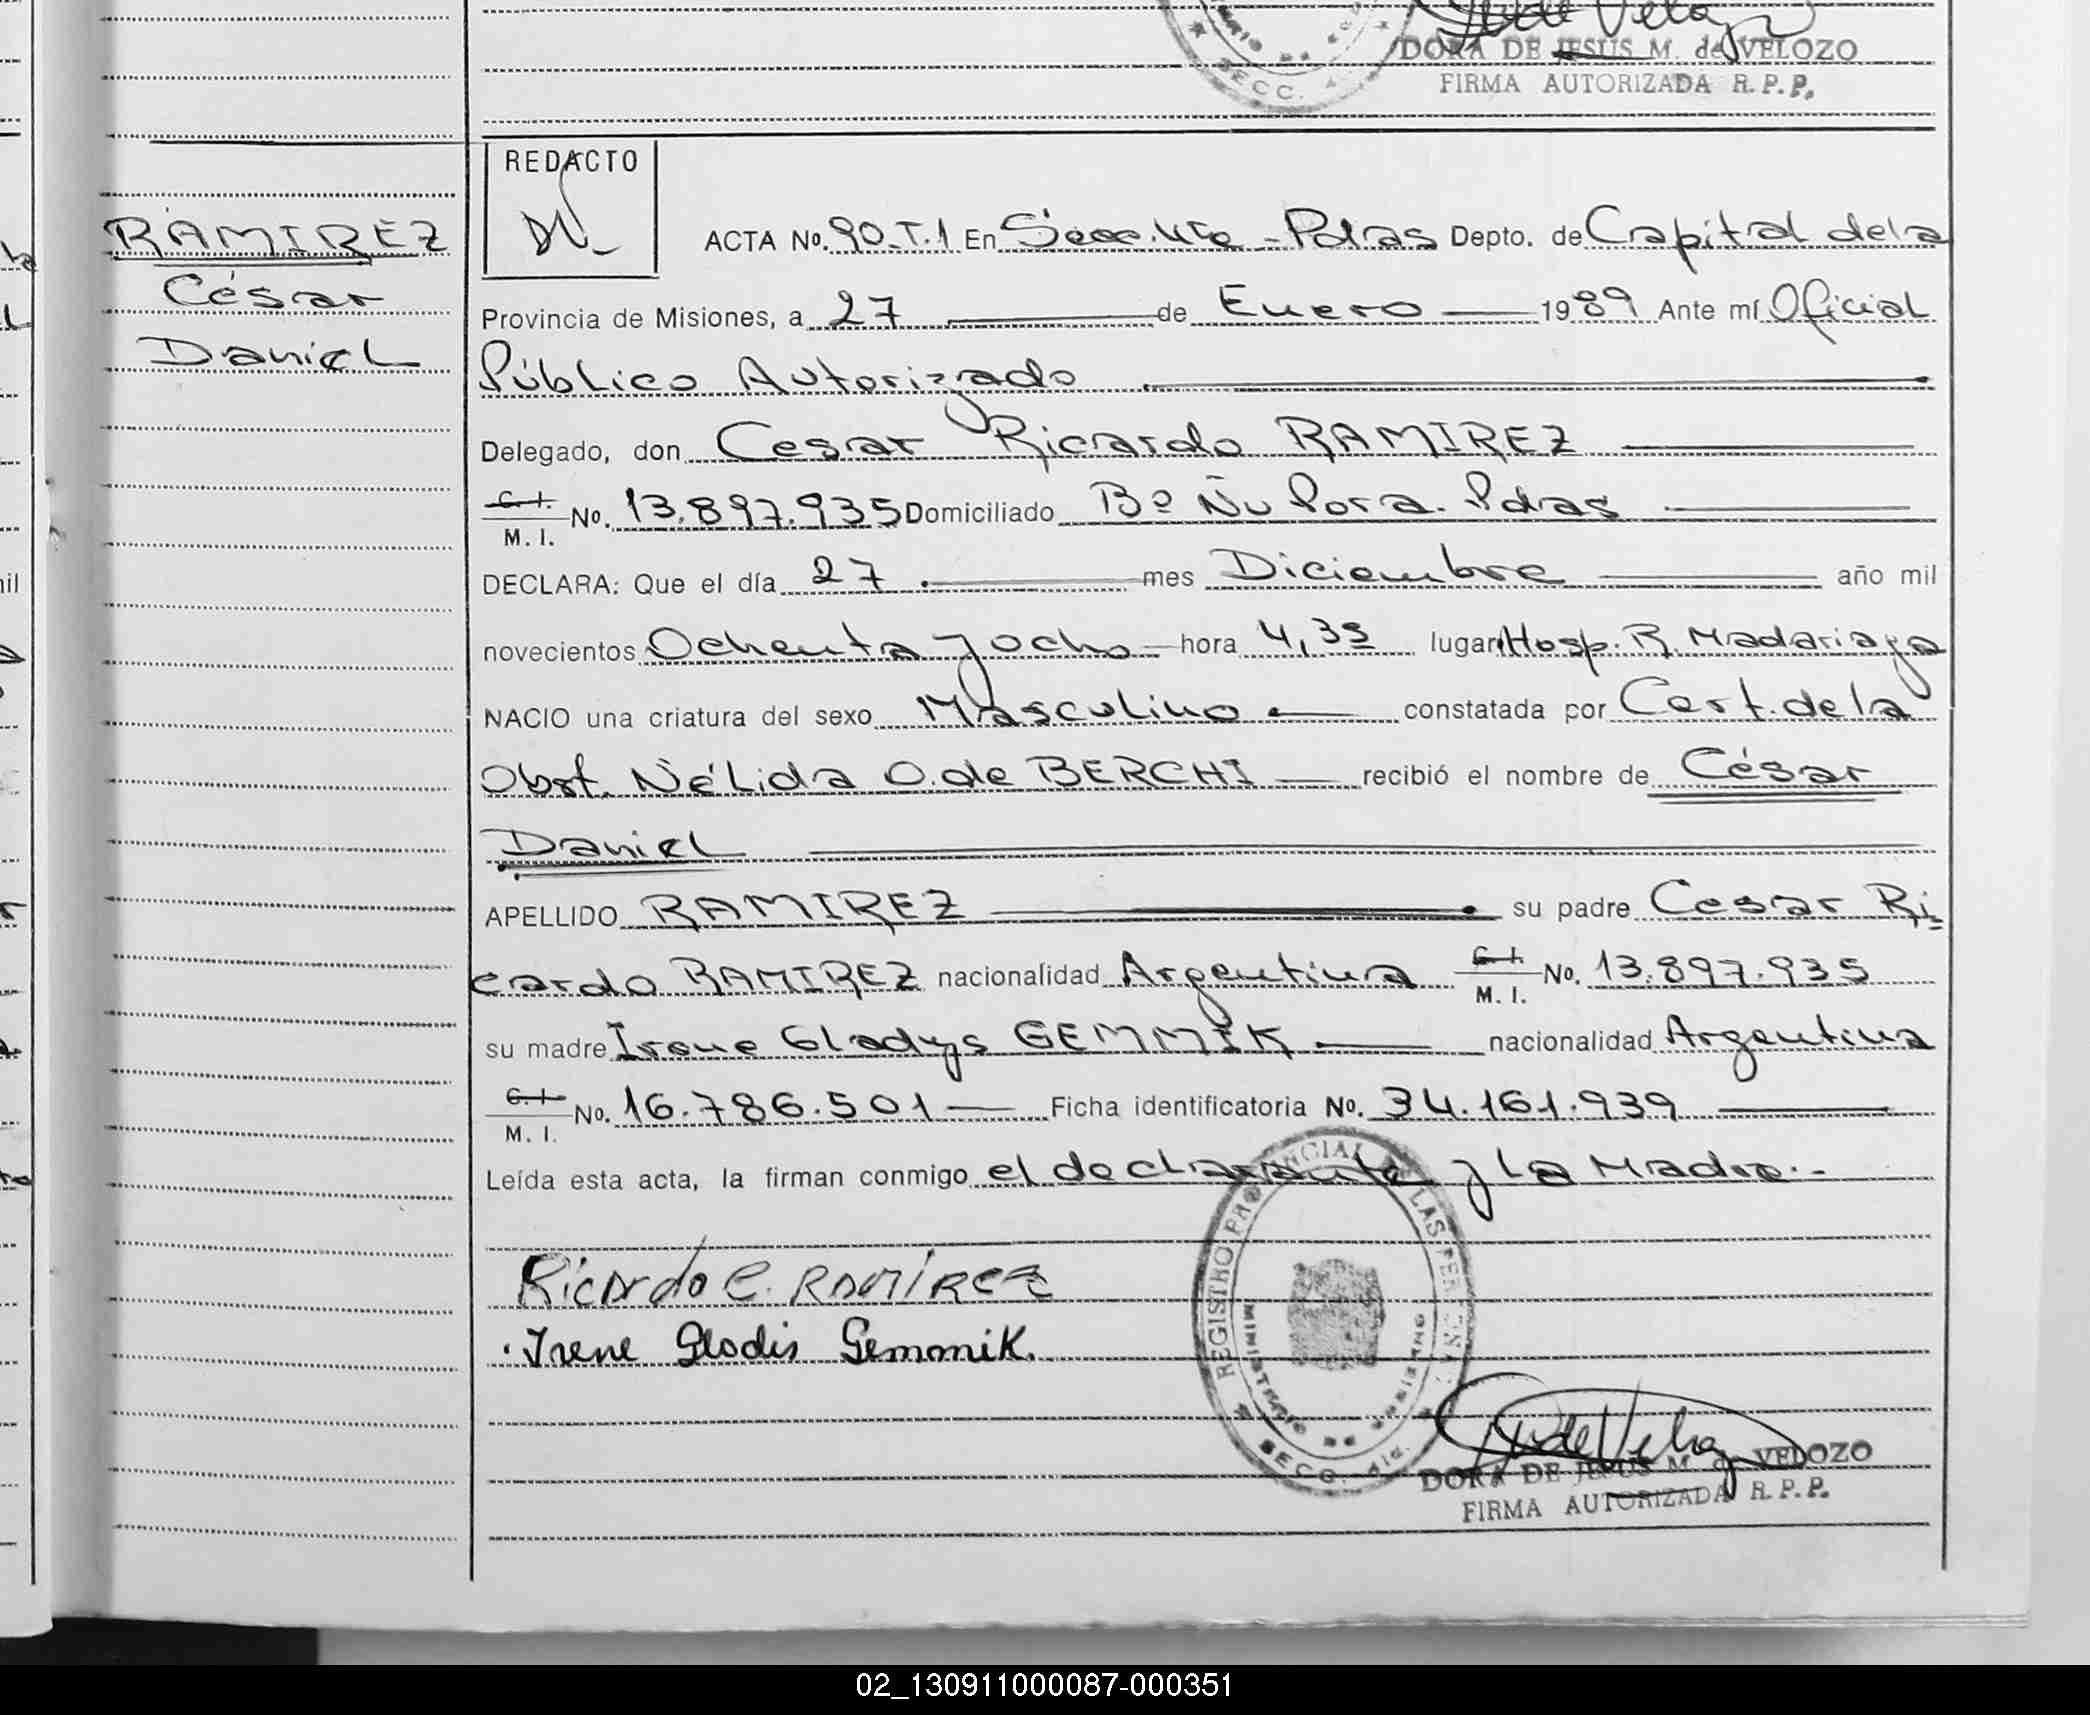 DORA DE JESUS M. de VELOZO
FIRMA AUTORIZADA R.P.P.
REDACTO
RAMIREZ
César
Daniel
ACTA No. 90.T.1 En Secc. 4ta - Pdas Depto. de Capital de la
Provincia de Misiones, a 27 de Enero 1989 Ante mí Oficial
Público Autorizado
Delegado, don Cesar Ricardo RAMIREZ
C.I. M.I. No. 13.897.935 Domiciliado Bº Ñu Pora. Pdas
DECLARA: Que el día 27 mes Diciembre año mil
novecientos Ochenta y ocho hora 4,35 lugar Hosp. R. Madariaga
NACIO una criatura del sexo Masculino constatada por Cert. de la
Obst. Nélida O. de BERCHI recibió el nombre de César
Daniel
APELLIDO RAMIREZ su padre Cesar Ri
cardo RAMIREZ nacionalidad Argentina C.I. M.I. No. 13.897.935
su madre Irene Gladys GEMMIK nacionalidad Argentina
C.I. M.I. No. 16.786.501 Ficha identificatoria No. 34.161.939
Leída esta acta, la firman conmigo el declarante y la Madre.-
Ricardo C. RAMIREZ
Irene Glodis Gemmik.
REGISTRO PROVINCIAL DE LAS PERSONAS
MINISTERIO DE
SECC. 4ta.
DORA DE JESUS M. de VELOZO
FIRMA AUTORIZADA R.P.P.
02_130911000087-000351